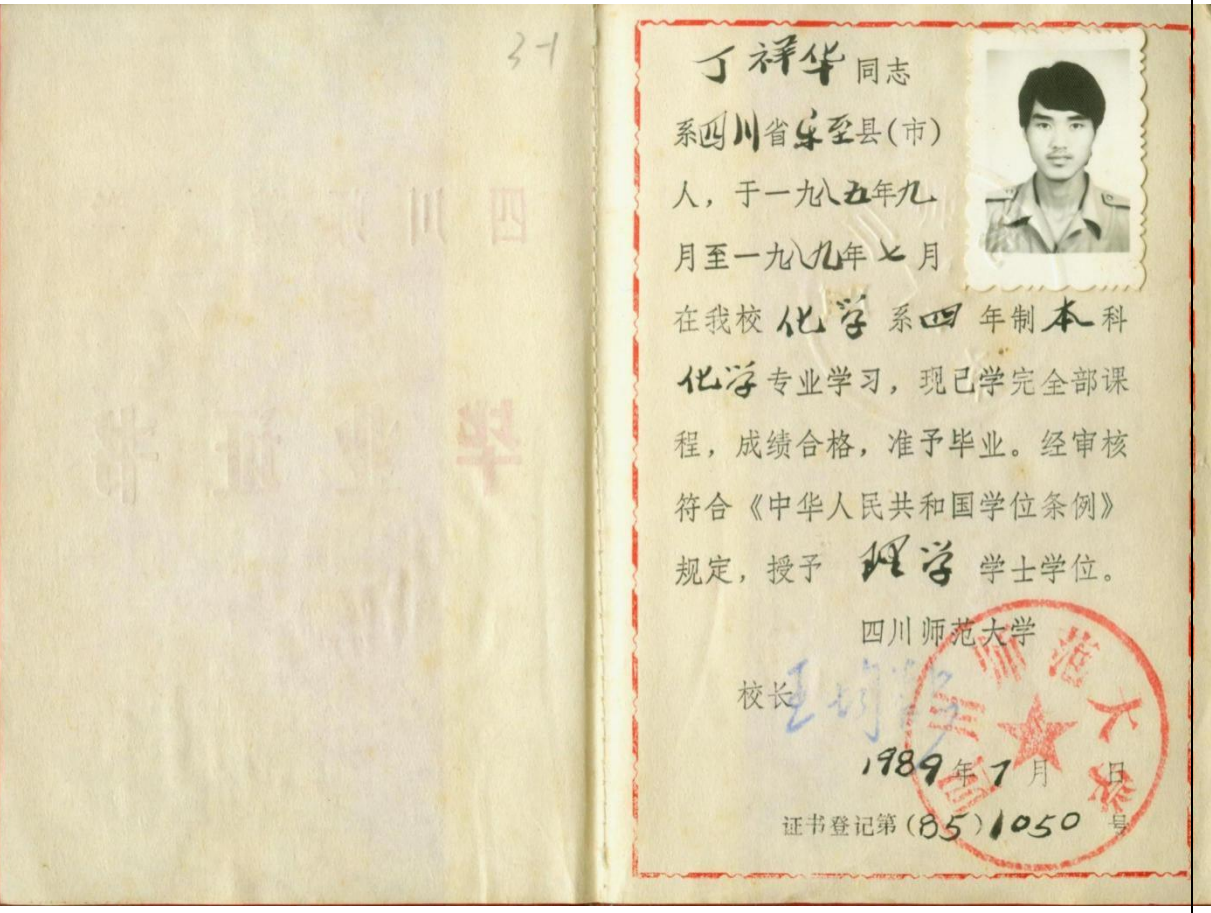 3-1
丁祥华同志
系四川省乐至县(市)
人，于一九八五年九
月至一九八九年七月
在我校化学系四年制本科
化学专业学习，现已学完全部课
程，成绩合格，准予毕业。经审核
符合《中华人民共和国学位条例》
规定，授予 理学 学士学位。
四川师范大学
校长
四川师范大学
1989年7月 日
证书登记第(85)1050号